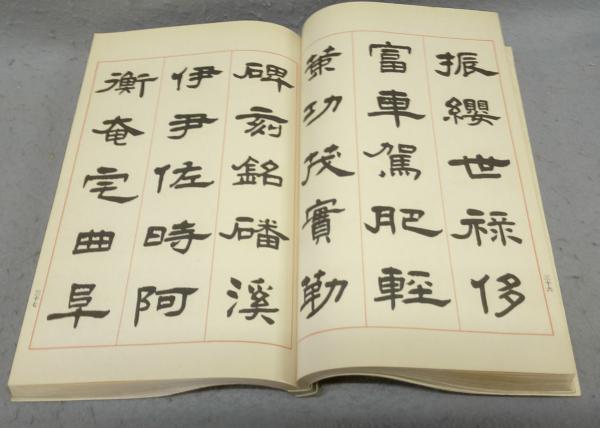 振纓世祿侈
富車駕肥輕
策功茂實勒
三十六
碑刻銘磻溪
伊尹佐時阿
衡奄宅曲阜
三十七